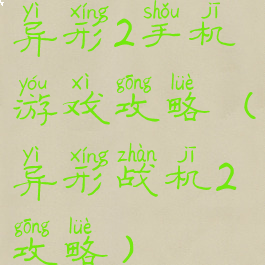 yì xíng shǒu jī
异形2手机
yóu xì gōng lüè
游戏攻略（
yì xíng zhàn jī
异形战机2
gōng lüè
攻略）